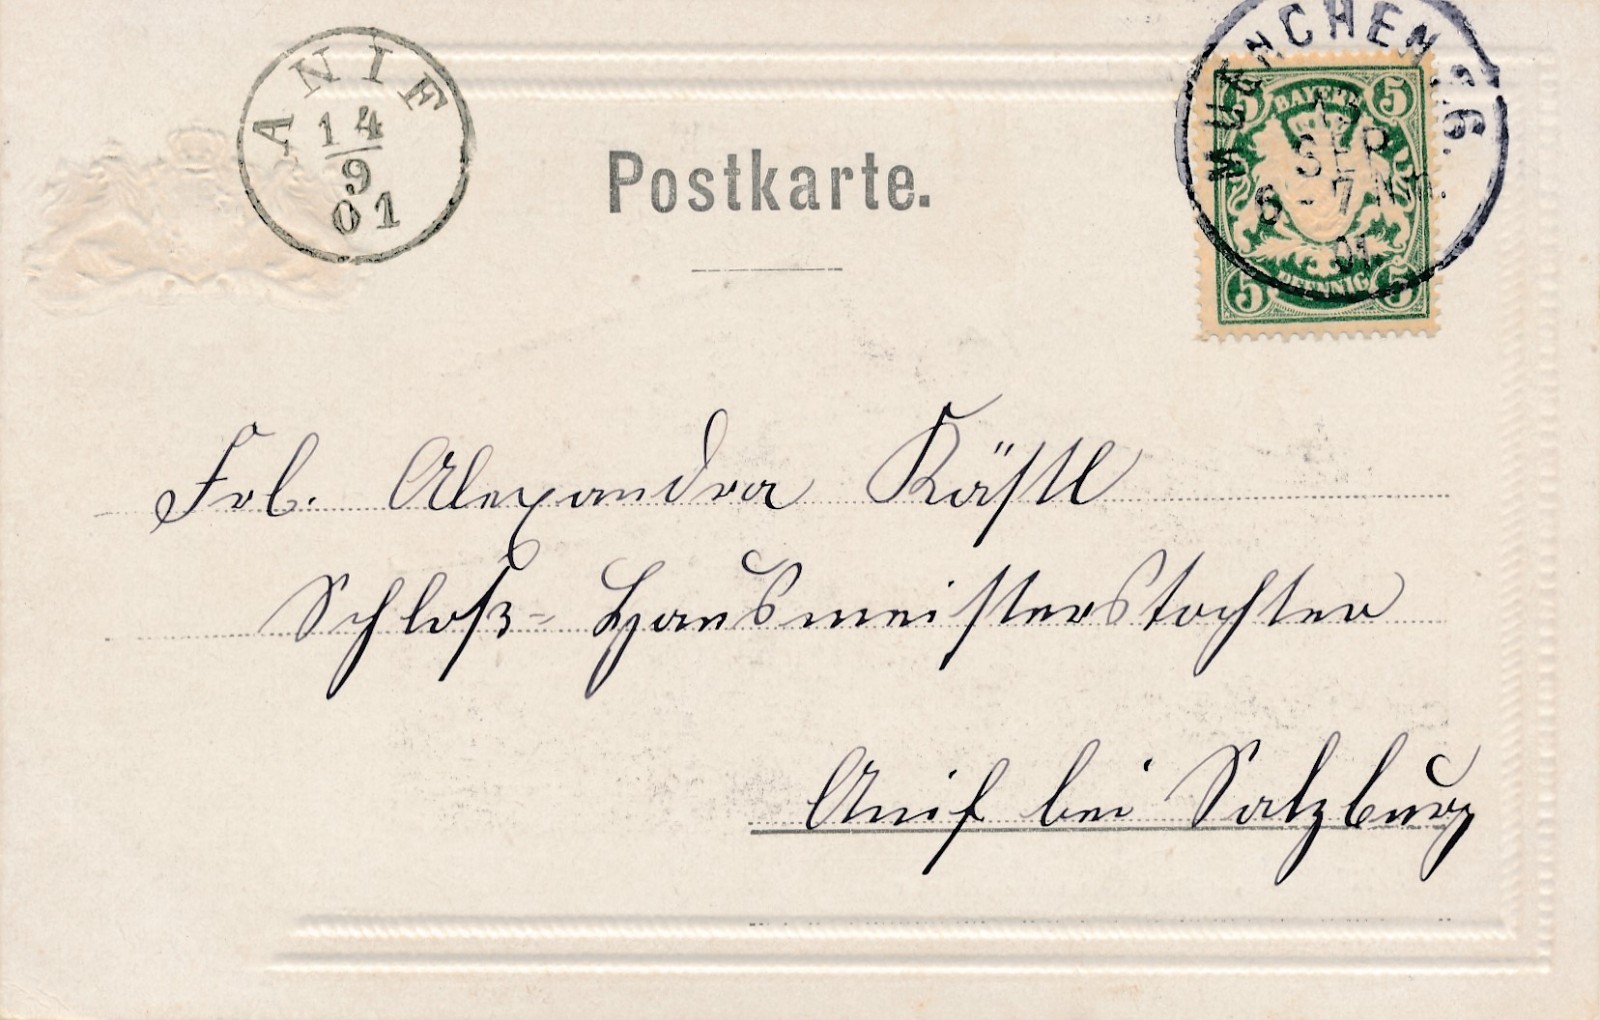 ANIF
14
9
01
MUENCHEN.26.
SEP
6-7 NM
01
5 BAYERN 5
5 PFENNIG 5
Postkarte.
Frl. Alexandra Kästl
Schloß- Hausmeisterstochter
Anif bei Salzburg